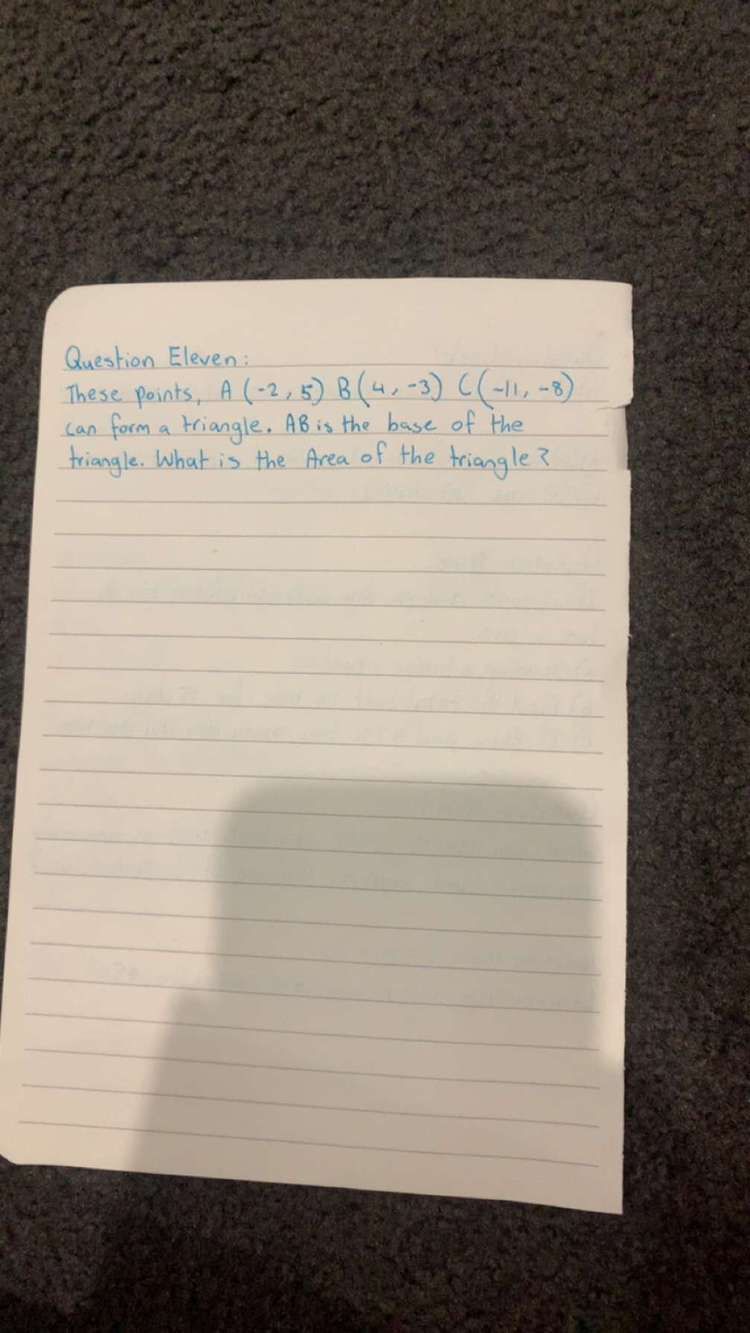 Question Eleven:
These points, A (-2, 5) B(4, -3) C(-11, -8)
can form a triangle. AB is the base of the
triangle. What is the Area of the triangle?